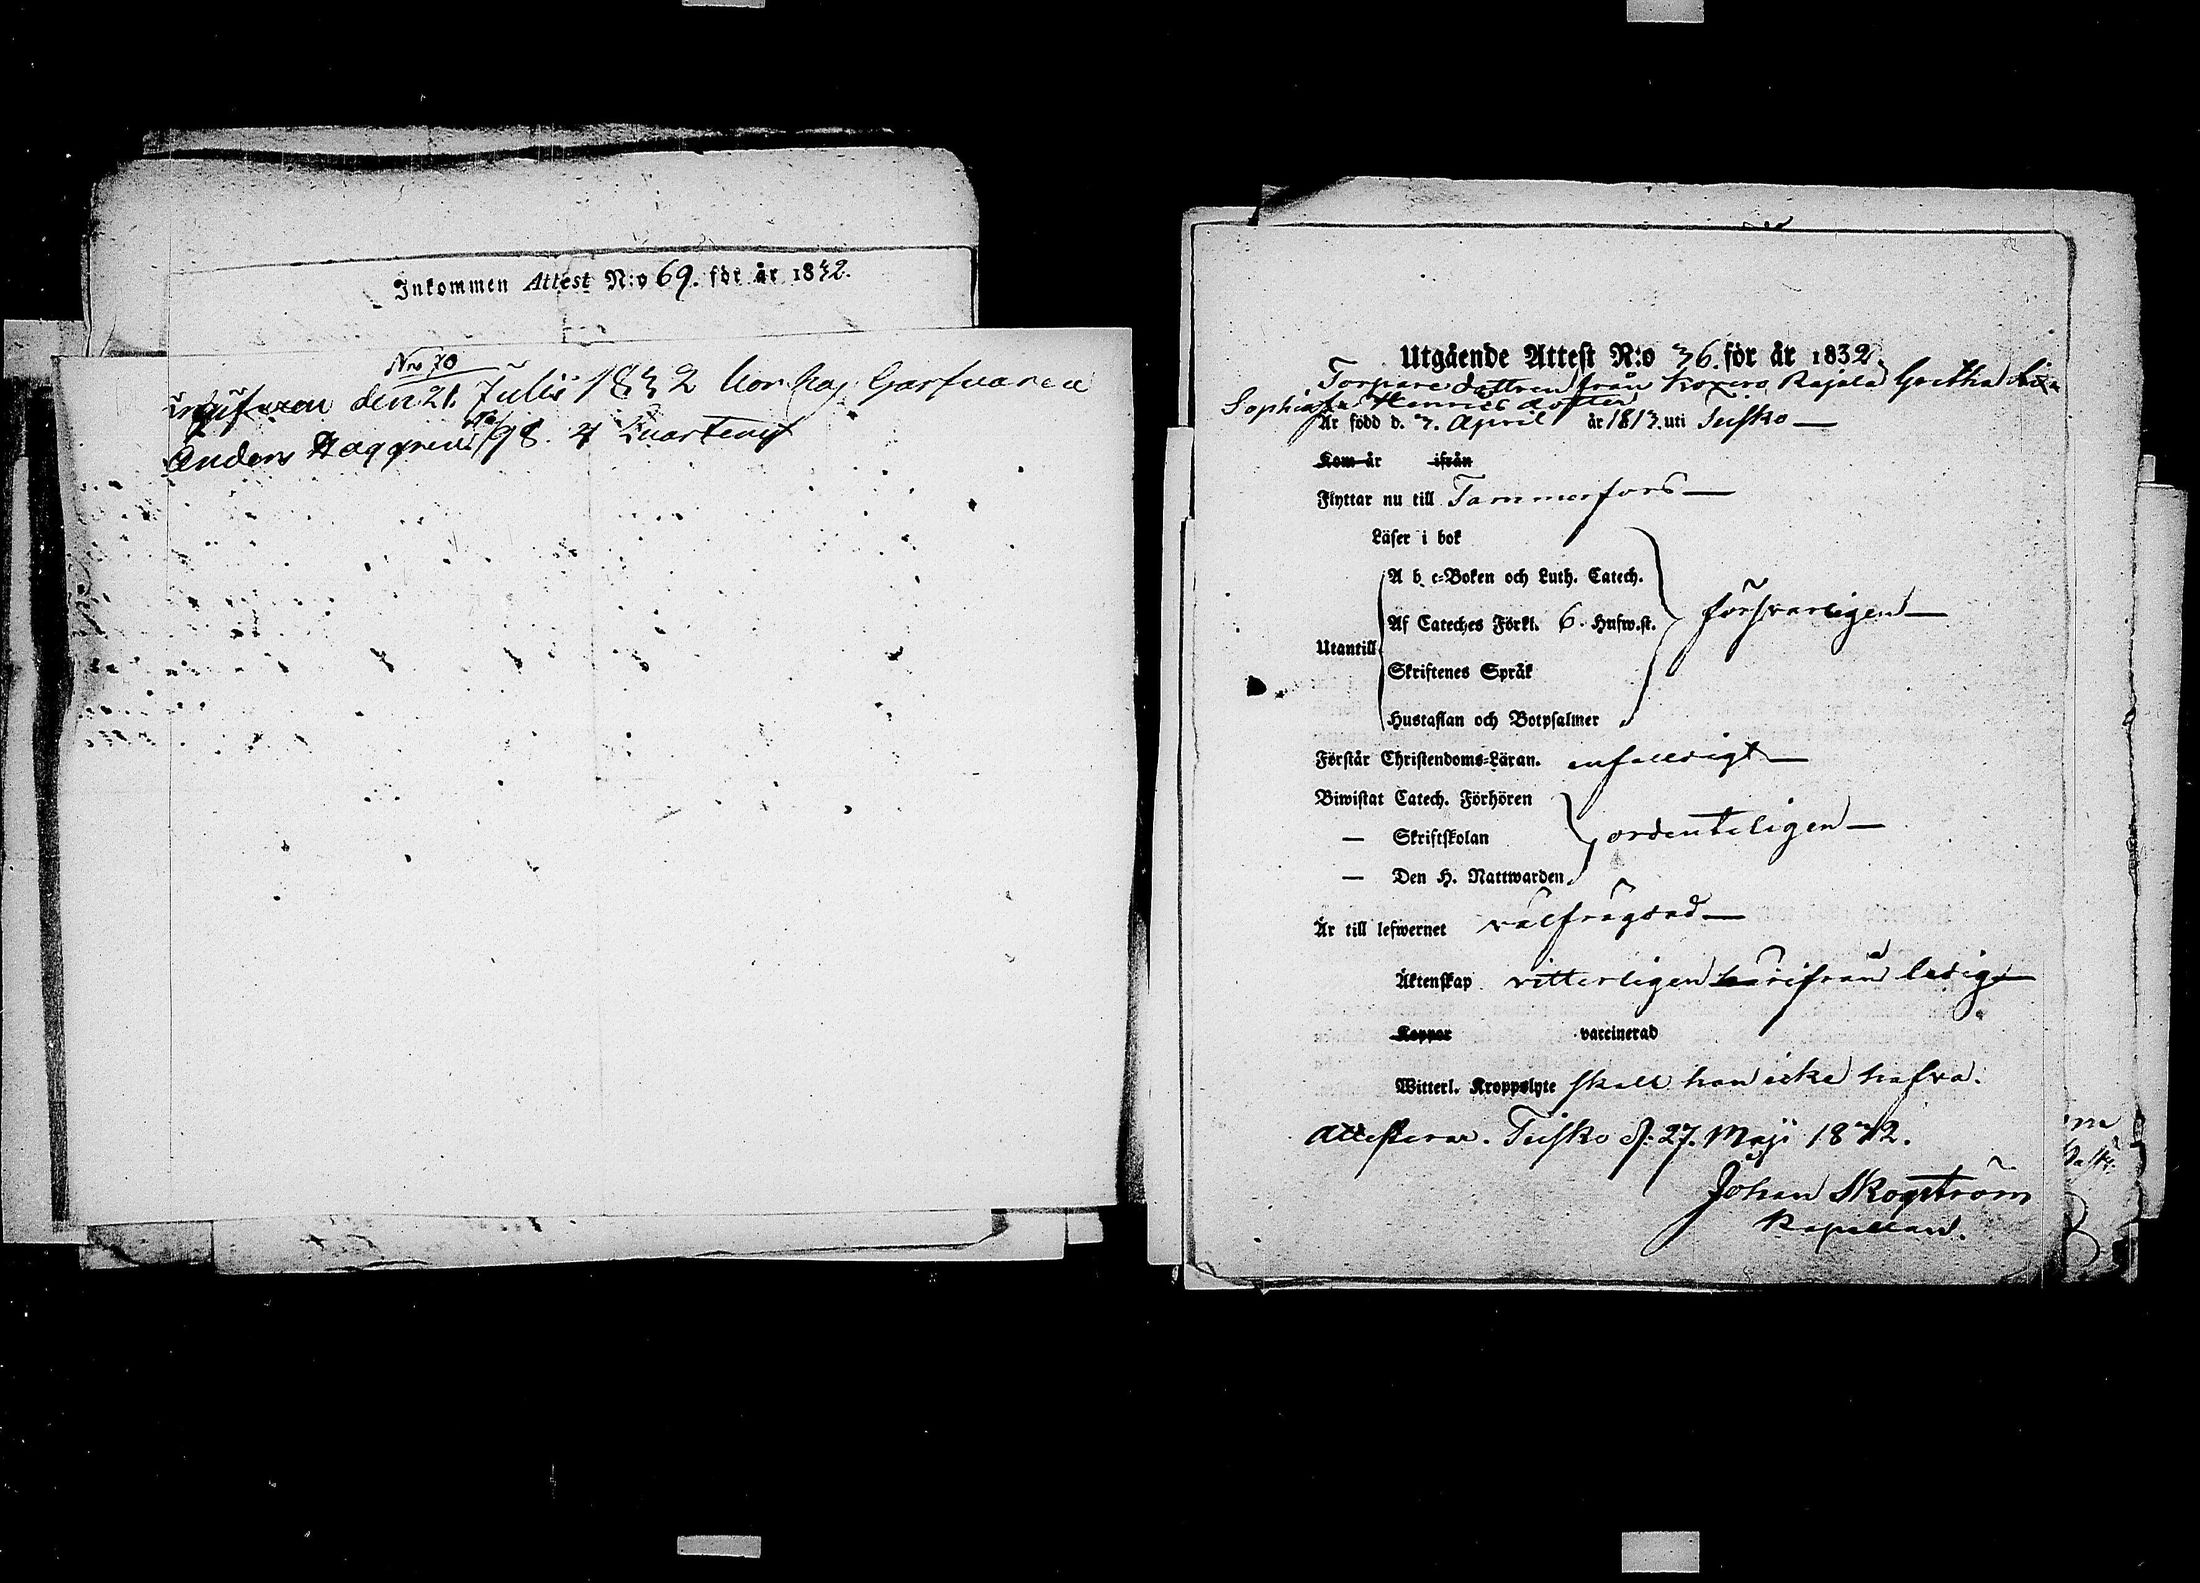 Inkommen Attest N:o 69. för år 1832.
Nro 70
ingifven den 21. Julii 1832 hos Garfvaren
Anders Haggren 98. 4 Quarteret
Utgående Attest N:o 36. för år 1832
Torpare dottren från Koxero Rajala Gretha Lisa
Sophia Henrics dotter
Är född d. 3. April år 1813. uti Teisko
Kom år ifrån
Flyttar nu till Tammerfors
Läser i bok
A b c-Boken och Luth. Catech.
Af Cateches Förkl. 6. Hufw.st. försvarligen
Utantill
Skriftenes Språk
Hustaflan och Botpsalmer
Förstår Christendoms-Läran. enfaldigt
Biwistat Catech. Förhören
— Skriftskolan ordenteligen
— Den H. Nattwarden
Är till lefwernet välfrägdad
Äktenskap vitterligen härifrån ledig
Koppor vaccinerad
Witterl. Kroppslyte skall hon icke hafva.
Attesterar. Teisko d. 27. Maji 1832.
Johan Skogström
Kapellan.